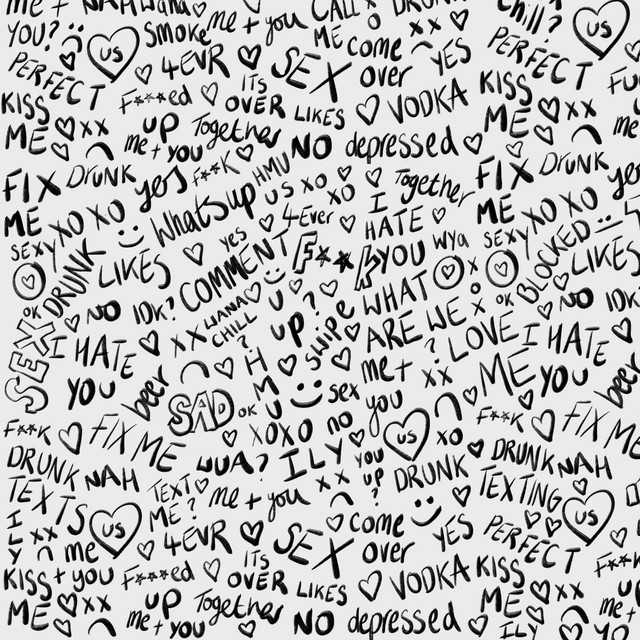 me + NAH wana CALL DRUNK
YOU? US Smoke me + you ME O xx Chill? US
PERFECT 4EVR SEX come over YES PERFECT
KISS ME xx F***ed ITS OVER LIKES VODKA KISS ME xx
UP Together me + you NO depressed
FIX ME DRUNK yes F**K HMU Together FIX ME DRUNK yes
SEXY XO XO Whatsup US XO XO 4Ever I HATE YOU SEXY XO XO
OK DRUNK LIKES yes COMMENT F**K WYA OK BLOCKED LIKES
NO IDK? WANA CHILL ? up? swipe WHAT ARE WE ? NO IDK
SEX I HATE YOU XX HMU LOVE ME I HATE YOU
beer SAD OK sex me + you xx beer
F**K FIX ME XOXO no US XO F**K FIX ME
DRUNK NAH WUA? ILY YOU UP? DRUNK DRUNK NAH
TEXTS US TEXT ME? me + you xx TEXTING US
ILY xx me + you 4EVR SEX come over YES PERFECT
KISS ME xx F***ed ITS OVER LIKES VODKA KISS ME xx
UP Together me + you NO depressed ILY